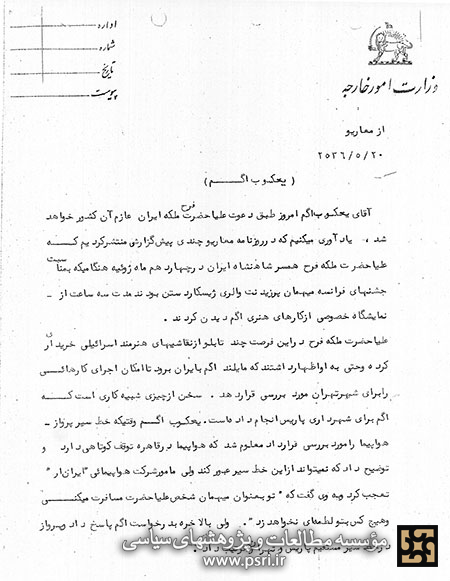 اداره
شماره
تاریخ
پیوست
وزارت امورخارجه
از معاریو
۲۵۳۶/۵/۲۰
( یعکوب اگم )
آقای یعکوب اگم امروز طبق دعوت علیاحضرت فرح ملکه ایران عازم آن کشور خواهد
شد ، یاد آوری میکنیم که در روزنامه معاریو چندی پیش گزارشی منتشر کردیم که
علیاحضرت ملکه فرح همسر شاهنشاه ایران در چهاردهم ماه ژوئیه هنگامیکه بمناسبت
جشنهای فرانسه میهمان پرزیدنت والری ژیسکاردستن بودند مدت سه ساعت از -
نمایشگاه خصوصی از کارهای هنری اگم دیدن کردند .
علیاحضرت ملکه فرح در این فرصت چند تابلو از نقاشیهای هنرمند اسرائیلی خریداری
کرده وحتی به او اظهار داشتند که مایلند اگم بایران برود تا امکان اجرای کارهائی
را برای شهر تهران مورد بررسی قرار دهد . سخن از چیزی شبیه کاری است که
اگم برای شهرداری پاریس انجام داده است . یعکوب اگم وقتیکه خط سیر پرواز -
هواپیما را مورد بررسی قرار داد معلوم شد که هواپیما در قاهره توقف کوتاهی دارد و
توضیح داد که نمیتواند از این خط سیر عبور کند ولی مامور شرکت هواپیمائی "ایران ار"
تعجب کرد و به وی گفت که " تو بعنوان میهمان شخص علیاحضرت مسافرت میکنی
وهیچ کس بتو لطمه‌ای نخواهد زد " . ولی بالاخره به درخواست اگم پاسخ داد و پرواز
سیر مستقیم پاریس و تهران ترتیب داد .
مؤسسه مطالعات و پژوهشهای سیاسی
www.psri.ir